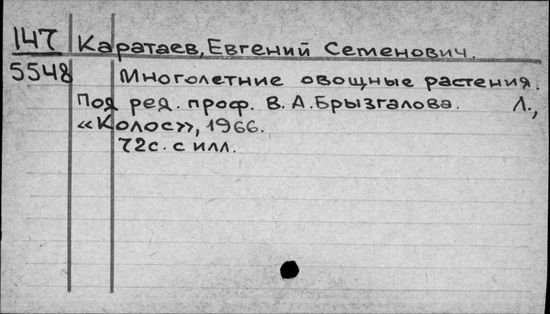 147 Каратаев, Евгений Семенович.
5548 Многолетние овощные растения.
Под ред. проф. В. А. Брызгалова. Л.,
«Колос», 1966.
72с. с илл.